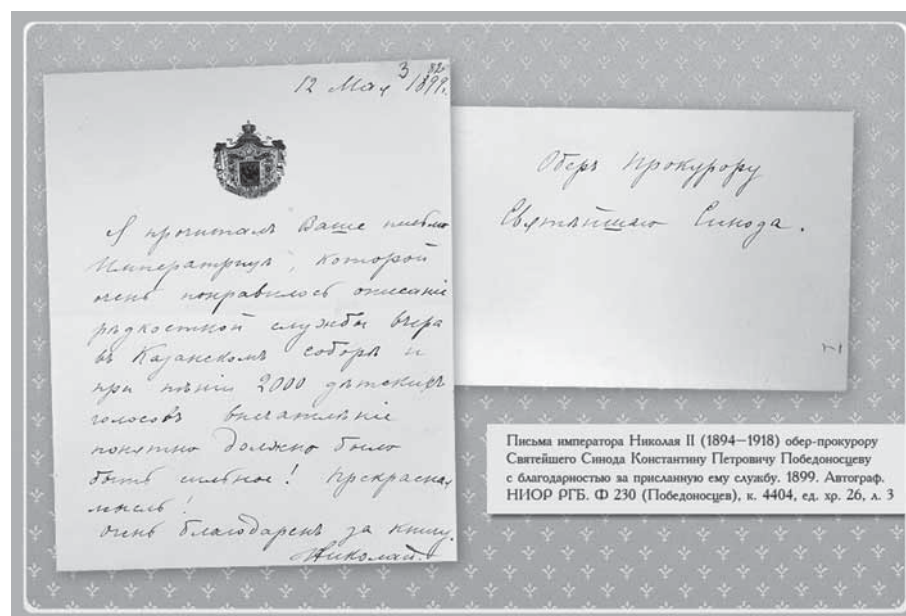 3 82
12 Мая 1899.
Я прочиталъ Ваше письмо
Императрицѣ, которой
очень понравилось описаніе
рѣдкостной службы вчера
въ Казанскомъ соборѣ и
при пѣніи 2000 дѣтскихъ
голосовъ впечатлѣніе
понятно должно было
быть сильное! Прекрасная
мысль!
Очень благодаренъ за книгу.
Николай.
Оберъ Прокурору
Святѣйшаго Синода.
Письма императора Николая II (1894–1918) обер-прокурору
Святейшего Синода Константину Петровичу Победоносцеву
с благодарностью за присланную ему службу. 1899. Автограф.
НИОР РГБ. Ф 230 (Победоносцев), к. 4404, ед. хр. 26, л. 3